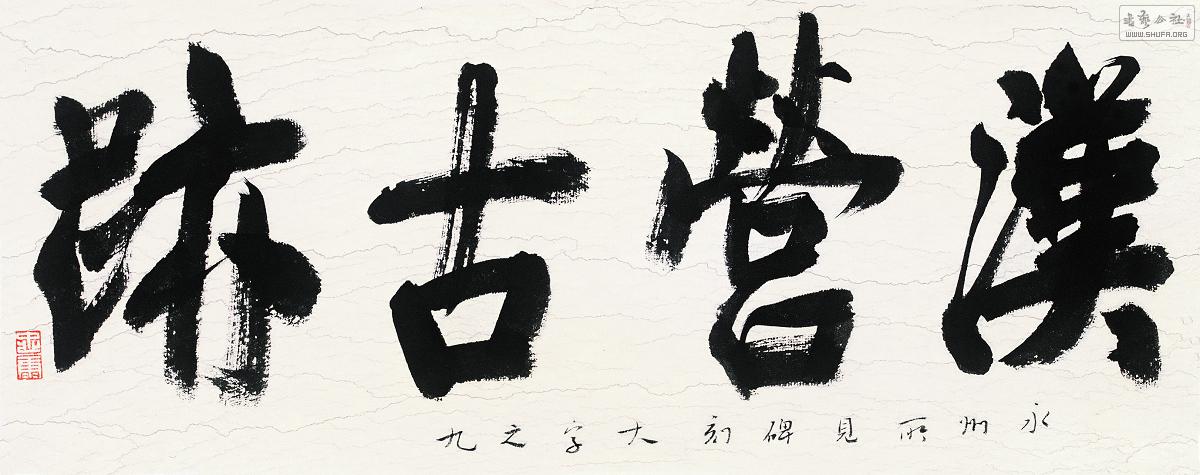 漢營古跡
永州所見碑刻大字之九
書藝公社
WWW.SHUFA.ORG